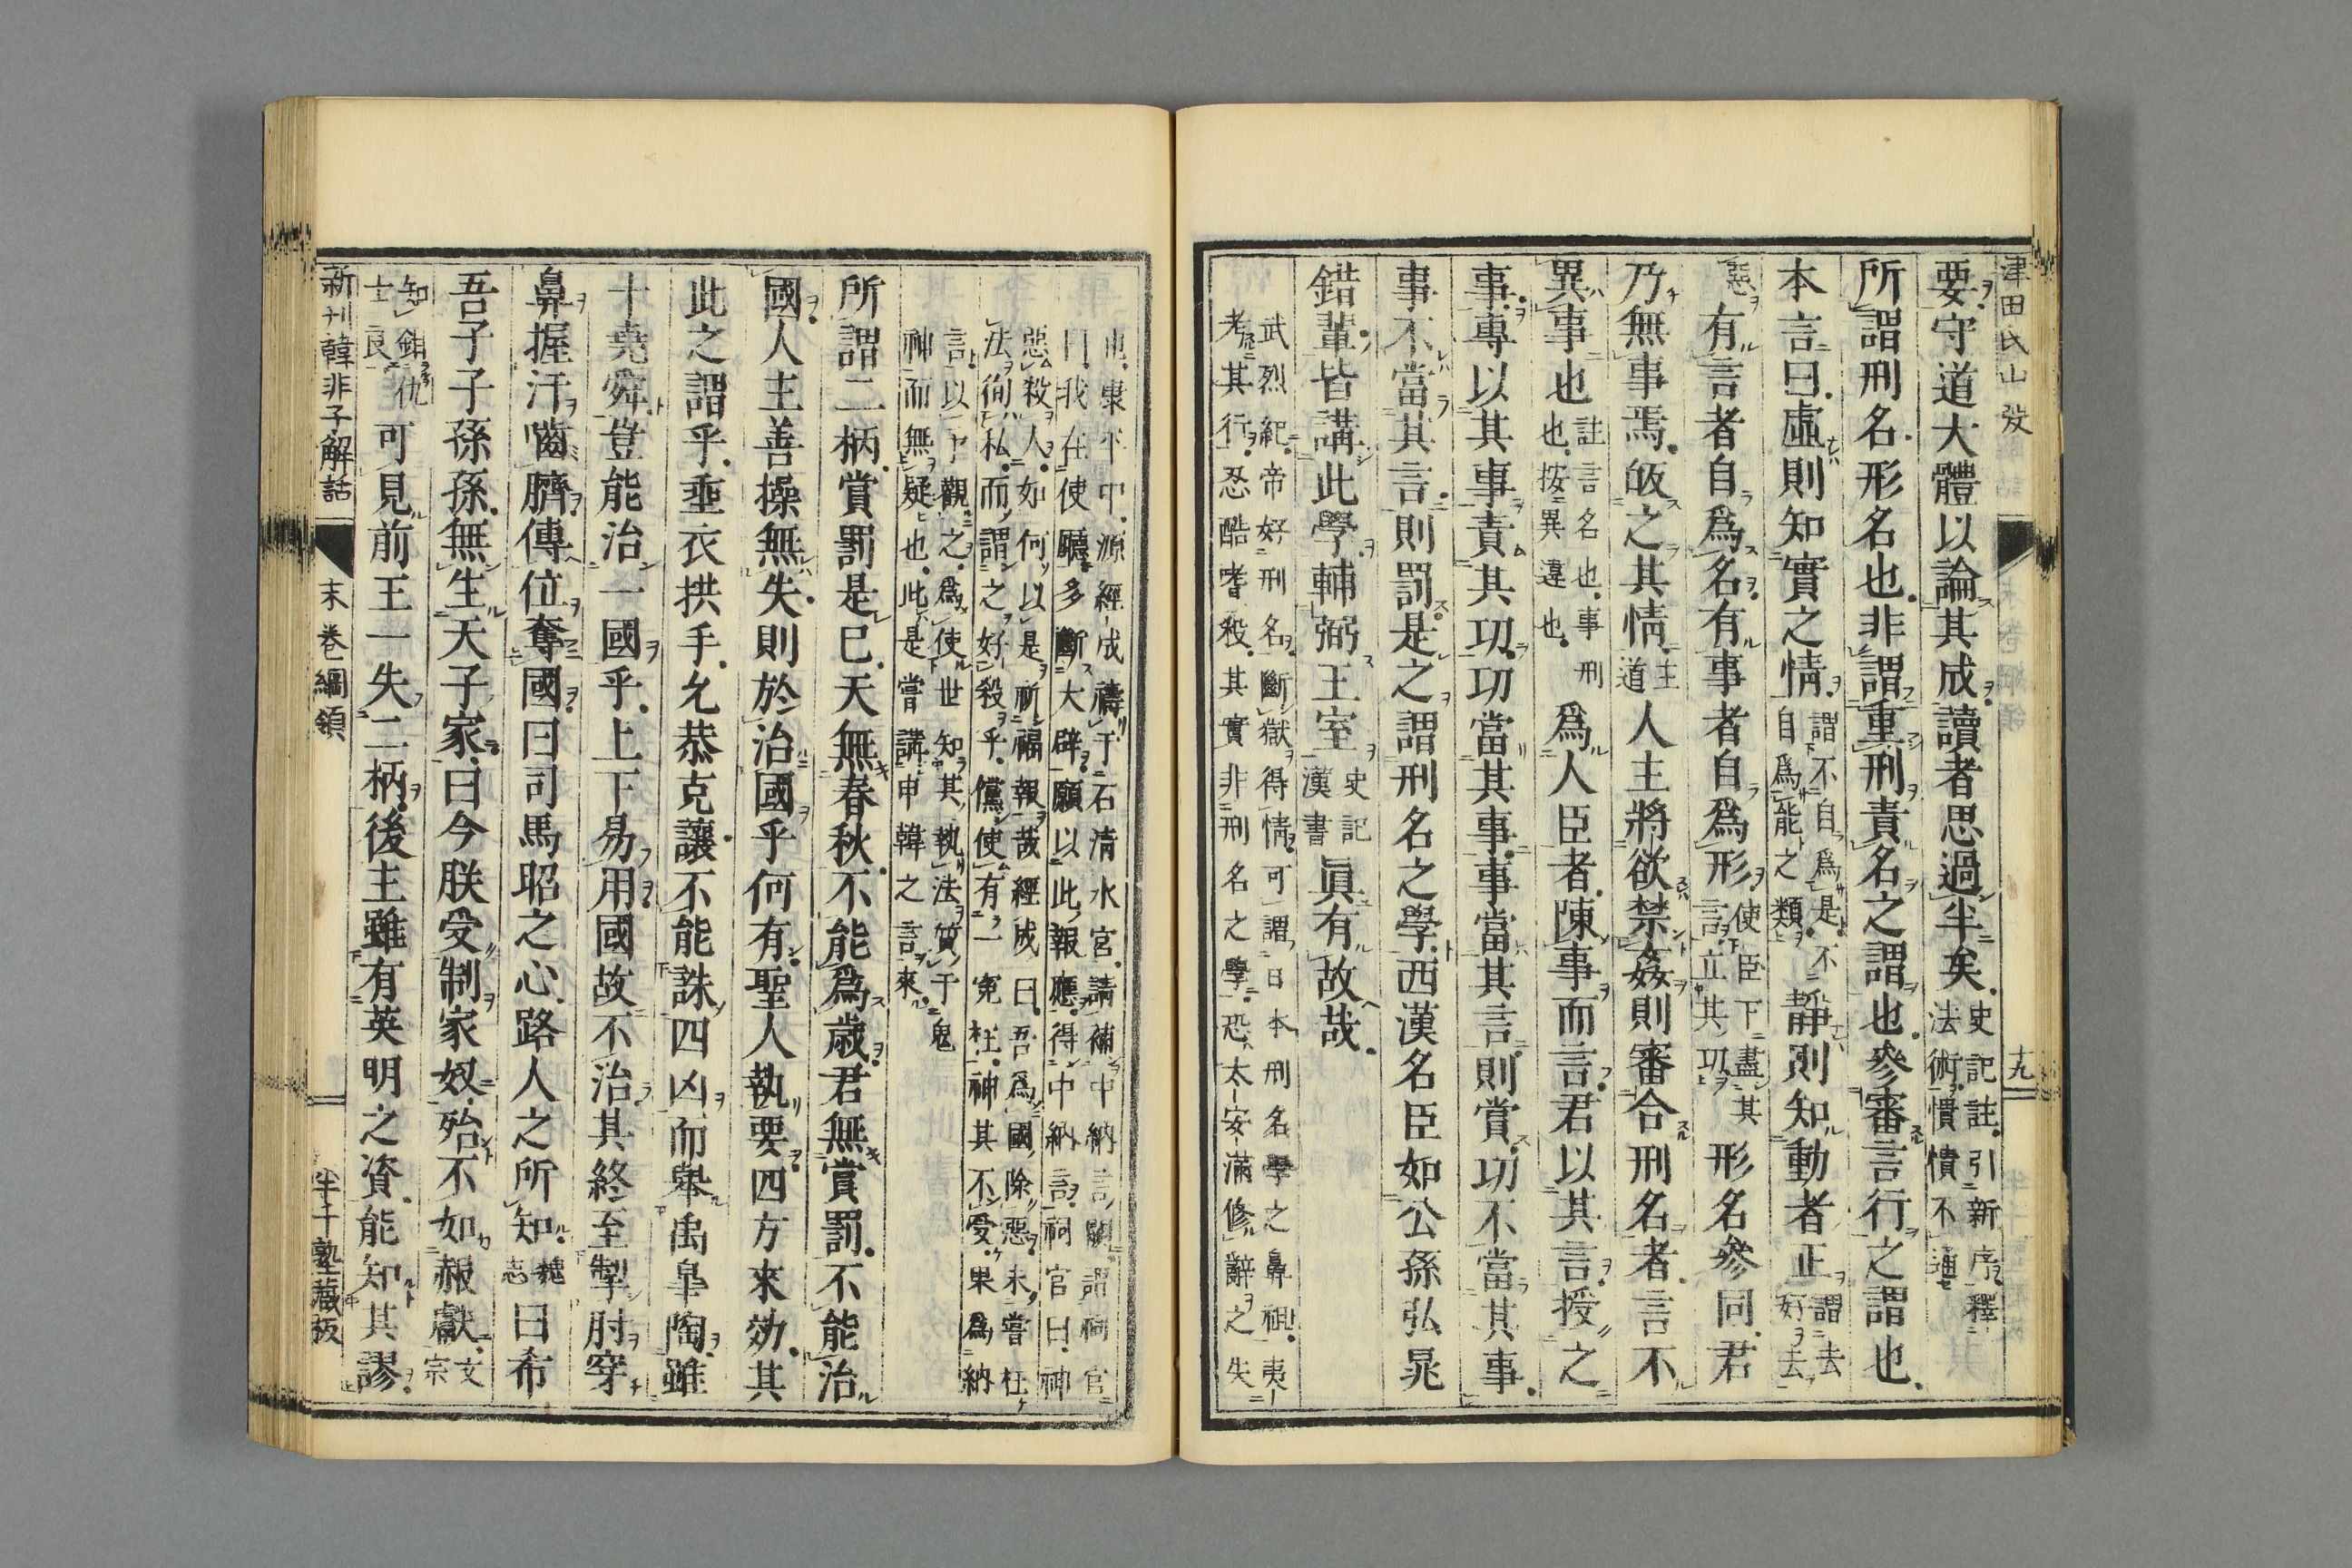 津田氏山癸
十九
要守道大體以論其成讀者思過半矣史記註引新序釋法術慣憒不通
所謂刑名形名也非謂重刑責名之謂也參審言行之謂也
本言曰虛則知實之情謂不自爲是不自爲能之類靜則知動者正謂去好去
惡有言者自爲名有事者自爲形使臣下盡其言立其功形名參同君
乃無事焉皈之其情主道人主將欲禁姦則審合刑名者言不
異事也註言名也事刑也按異違也爲人臣者陳事而言君以其言授之
事專以其事責其功功當其事事當其言則賞功不當其事
事不當其言則罰是之謂刑名之學西漢名臣如公孫弘晁
錯輩皆講此學輔弼王室史記漢書眞有故哉
武烈紀帝好刑名斷獄得情可謂日本刑名學之鼻祖夷
考其行忍酷嗜殺其實非刑名之學恐太安滿修辭之失
也東平中源經成禱于石清水宮請補中納言願謂祠官
曰我在使廳多斷大辟願以此報應得中納言祠官曰神
惡殺人如何以是祈福報哉經成曰吾爲國除惡未嘗枉
法徇私而謂之好殺乎儻使有一寃枉神其不受果爲納
言以中觀之爲使世知其執法質于鬼
神而無疑也此是嘗講申韓之言來
所謂二柄賞罰是已天無春秋不能爲歳君無賞罰不能治
國人主善操無失則於治國乎何有聖人執要四方來効其
此之謂乎垂衣拱手允恭克讓不能誅四凶而舉禹皐陶雖
十堯舜豈能治一國乎上下易用國故不治其終至掣肘穿
鼻握汗嚙臍傳位奪國曰司馬昭之心路人之所知魏志曰希
吾子子孫孫無生天子家曰今朕受制家奴殆不如赧獻文宗
知鉏仇士良可見前王一失二柄後主雖有英明之資能知其謬
新刊韓非子解詁
末卷綱領
半千塾藏板